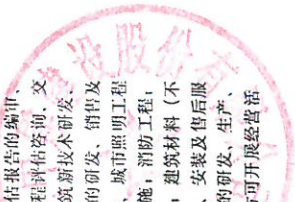 估报告的编审、
程评估咨询、交
筑新技术研发、
的研发、销售及
、城市照明工程
施；消防工程；
；建筑材料（不
、安装及售后服
的研发、生产、
可开展经营活